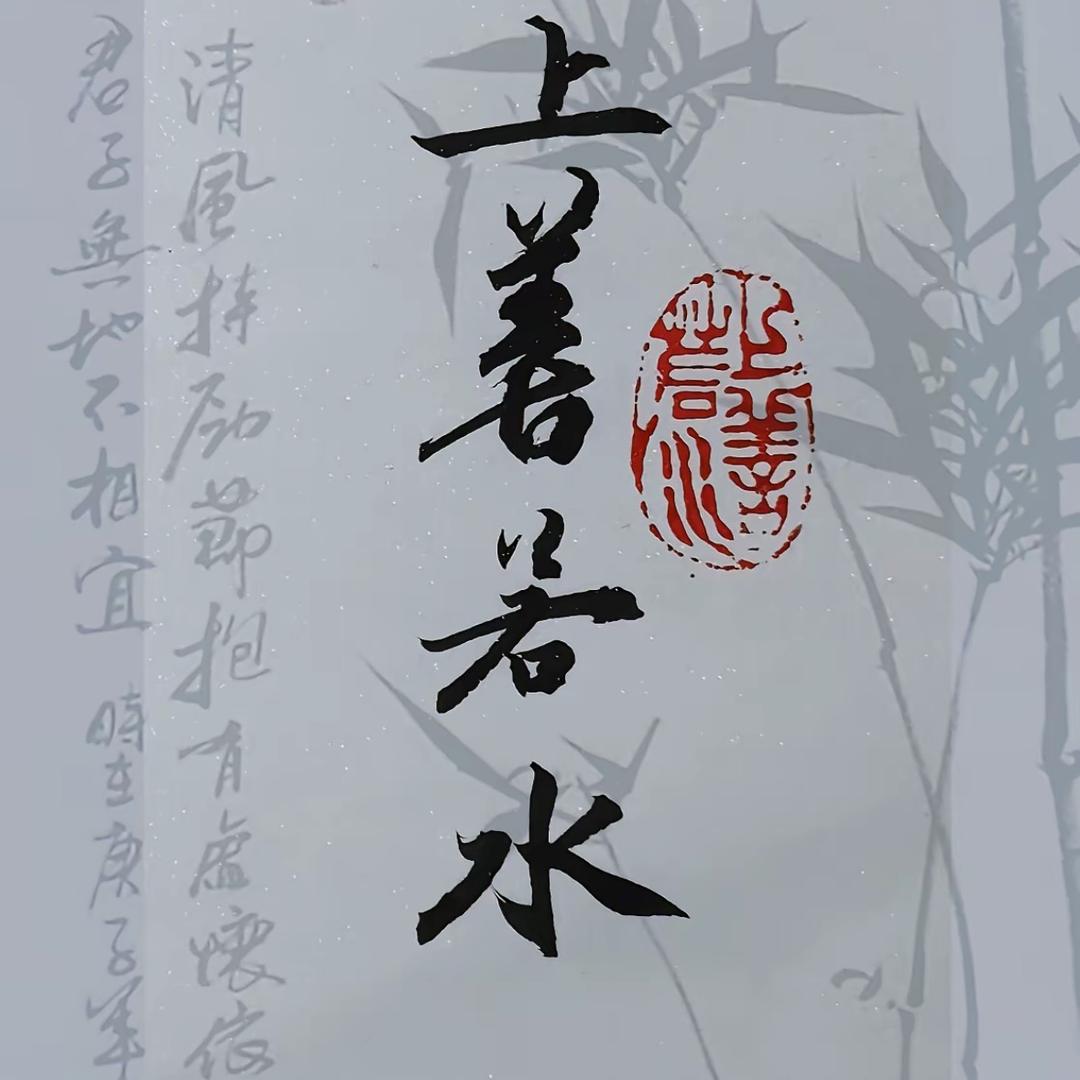 上善若水
上善若水
清風持節抱有虛懷依
君子無地不相宜 時在庚子年